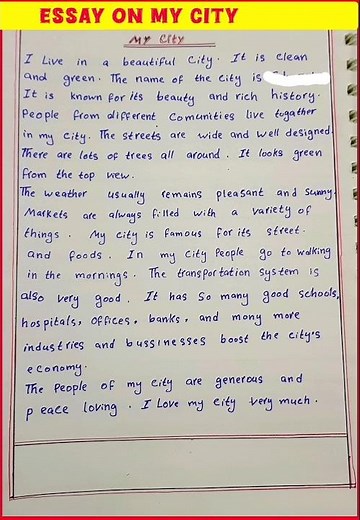 ESSAY ON MY CITY
My City
I Live in a beautiful City. It is clean
and green. The name of the city is
It is known for its beauty and rich history.
People from different Comunities live together
in my city. The streets are wide and well designed.
There are lots of trees all around. It looks green
from the top view.
The weather usually remains pleasant and sunny.
Markets are always filled with a variety of
things. My city is famous for its street.
and foods. In my city People go to walking
in the mornings. The transportation system is
also very good. It has so many good schools,
hospitals, offices, banks, and mony more
industries and bussinesses boost the city's
economy.
The People of my city are generous and
peace loving. I Love my city very much.